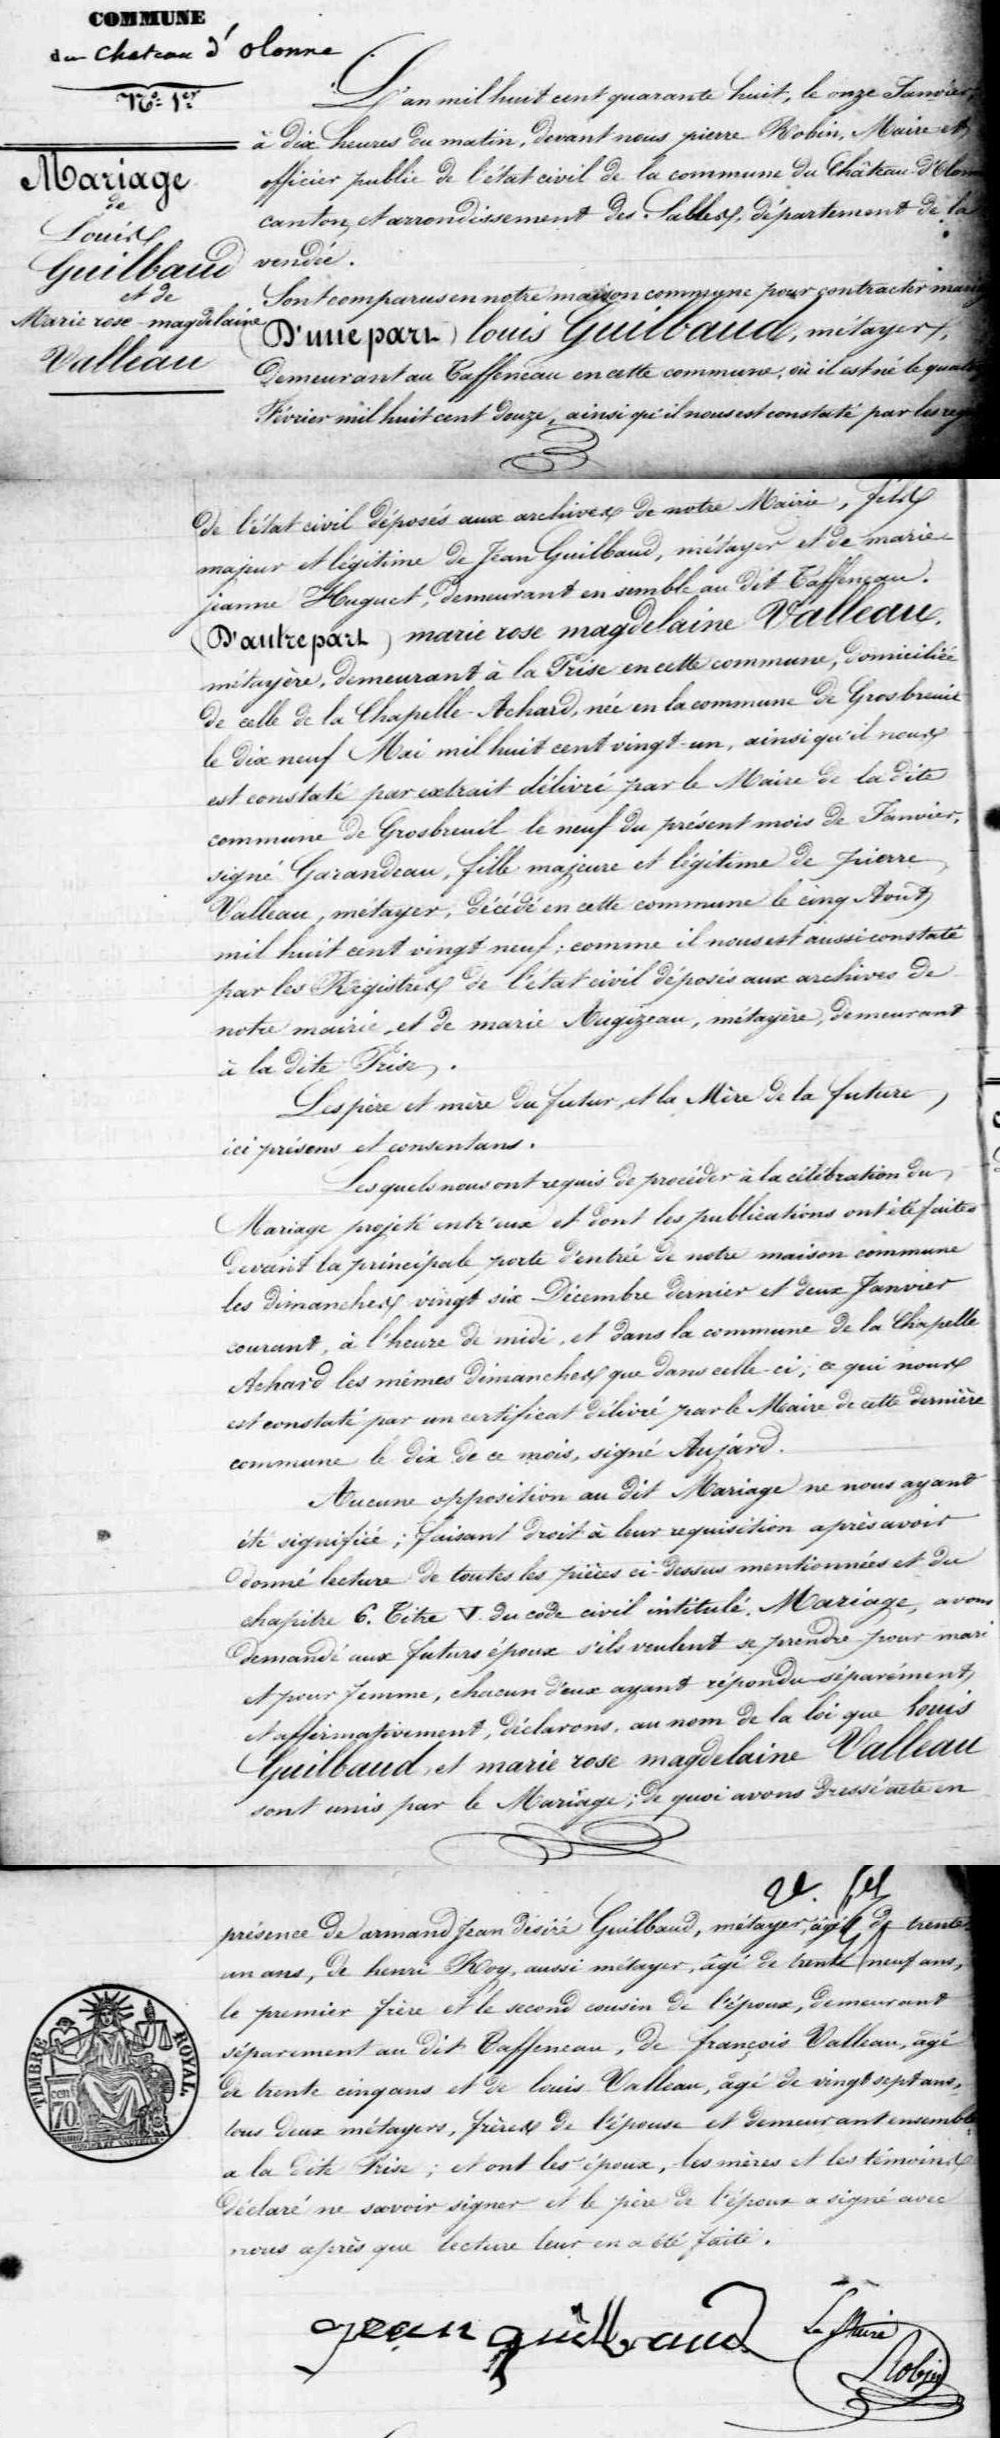 COMMUNE
du Chateau d'Olonne
No. 1er
Mariage
de
Louis
Guilbaud
et de
Marie rose magdelaine
Valleau
L'an mil huit cent quarante huit, le onze Janvier,
à dix heures du matin, devant nous pierre Robin, Maire et
officier public de l'état civil de la commune du Château d'Olonne
canton et arrondissement des Sables, département de la
vendée.
Sont comparus en notre maison commune pour contracter mariage
(D'une part) louis Guilbaud, métayer,
Demeurant au Taffeneau en cette commune, où il est né le quatre
Février mil huit cent douze, ainsi qu'il nous est constaté par les reg
de l'état civil déposés aux archives de notre Mairie, fils
majeur et légitime de Jean Guilbaud, métayer et de marie
jeanne Huguet, demeurant ensemble au dit Taffeneau.
(D'autre part) marie rose magdelaine Valleau,
métayère, demeurant à la Frise en cette commune, domiciliée
de celle de la Chapelle-Achard, née en la commune de Grosbreuil
le dix neuf Mai mil huit cent vingt-un, ainsi qu'il nous
est constaté par extrait délivré par le Maire de la dite
commune de Grosbreuil le neuf du présent mois de Janvier,
signé Garandeau, fille majeure et légitime de pierre
Valleau, métayer, décédé en cette commune le cinq Août
mil huit cent vingt neuf; comme il nous est aussi constaté
par les Régistres de l'état civil déposés aux archives de
notre mairie, et de marie Augizeau, métayère, demeurant
à la dite Frise.
Les père et mère du futur, et la Mère de la future,
ici présens et consentans.
Lesquels nous ont requis de procéder à la célébration du
Mariage projeté entr'eux et dont les publications ont été faites
devant la principale porte d'entrée de notre maison commune
les dimanches vingt six Décembre dernier et deux Janvier
courant, à l'heure de midi, et dans la commune de la Chapelle
Achard les mêmes dimanches que dans celle-ci; ce qui nous
est constaté par un certificat délivré par le Maire de cette dernière
commune le dix de ce mois, signé Aujard.
Aucune opposition au dit Mariage ne nous ayant
été signifiée; faisant droit à leur requisition après avoir
donné lecture de toutes les pièces ci-dessus mentionnées et du
chapitre 6. Titre V. du code civil intitulé. Mariage, avons
demandé aux futurs époux s'ils veulent se prendre pour mari
et pour femme, chacun d'eux ayant répondu séparément
et affirmativement, déclarons, au nom de la loi que louis
Guilbaud, et marie rose magdelaine Valleau
sont unis par le Mariage; de quoi avons dressé acte en
présence de armand Jean désiré Guilbaud, métayer, âgé de trente
un ans, de henri Roy, aussi métayer, âgé de trente neuf ans,
le premier frère et le second cousin de l'époux, demeurant
séparement au dit Taffeneau, de françois Valleau, âgé
de trente cinq ans et de louis Valleau, âgé de vingt sept ans,
tous deux métayers, frères de l'épouse et demeurant ensemble
a la dite Frise; et ont les époux, les mères et les témoins
déclaré ne savoir signer et le père de l'époux a signé avec
nous après que lecture leur en a été faite.
TIMBRE ROYAL
70
jean guilbaud
Le Maire
Robin